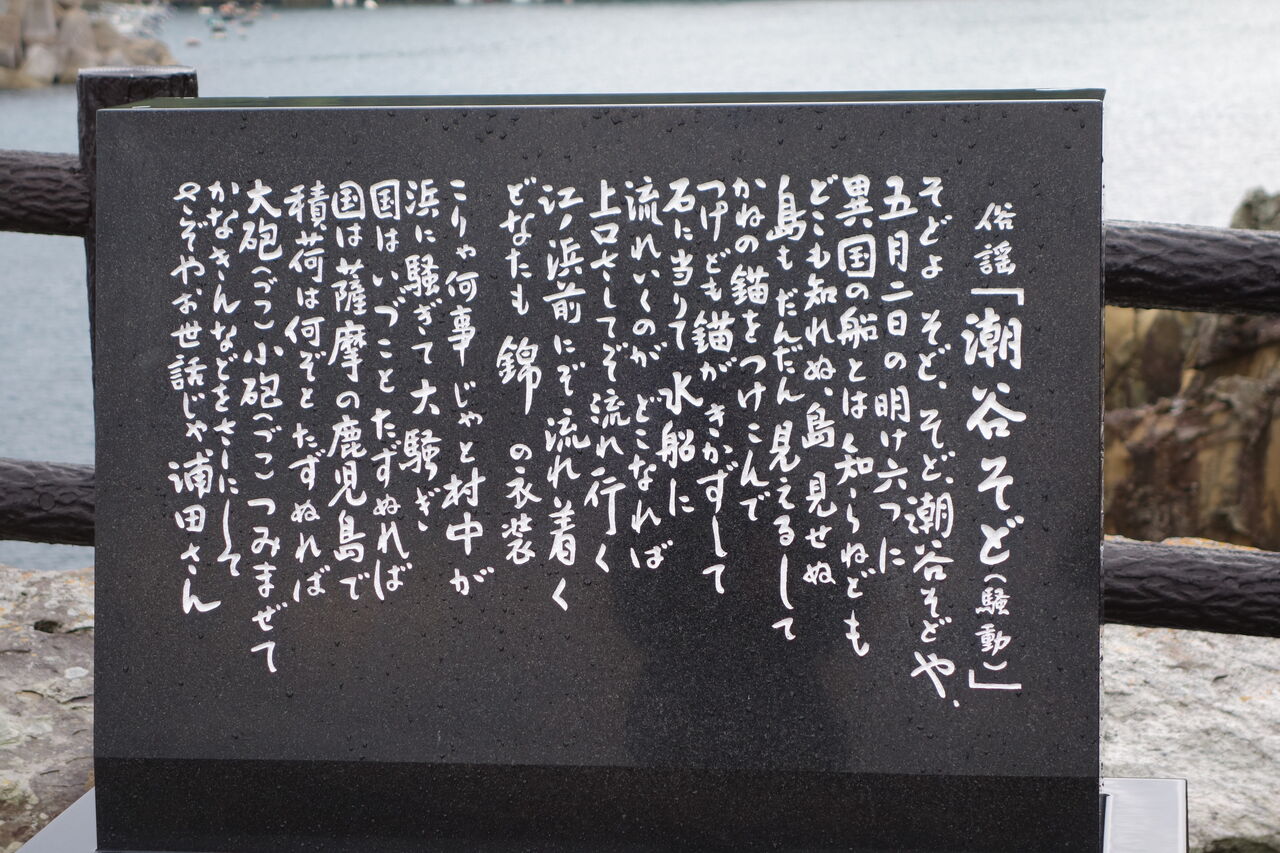 俗謡「潮谷そど(騒動)」
そどよ そど、そど、潮谷そどや、
五月二日の明け六つに
異国の船とは知らねども
どこも知れぬ、島見せぬ
島も だんだん 見えるしして
かねの錨をつけこんで
つけども錨が きかずして
石に当りて 水船に
流れいくのが どこなれば
上口さしてぞ流れ行く
江ノ浜前にぞ流れ着く
どなたも 錦 の衣装
こりゃ何事 じゃと村中が
浜に騒ぎて大騒ぎ
国は いづことたずぬれば
国は薩摩の鹿児島で
積荷は何ぞと たずぬれば
大砲(づつ)小砲(づつ) つみまぜて
かなきんなどをさしにして
さぞやお世話じゃ浦田さん